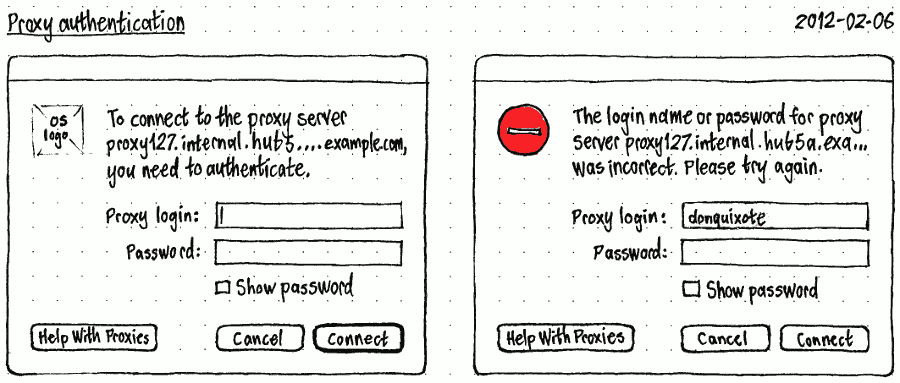 Proxy authentication
2012-02-06
OS
logo
To connect to the proxy server
proxy127.internal.hub5....example.com,
you need to authenticate.
Proxy login:
Password:
Show password
Help With Proxies
Cancel
Connect
The login name or password for proxy
server proxy127.internal.hub5a.exa...
was incorrect. Please try again.
Proxy login: donquixote
Password:
Show password
Help With Proxies
Cancel
Connect